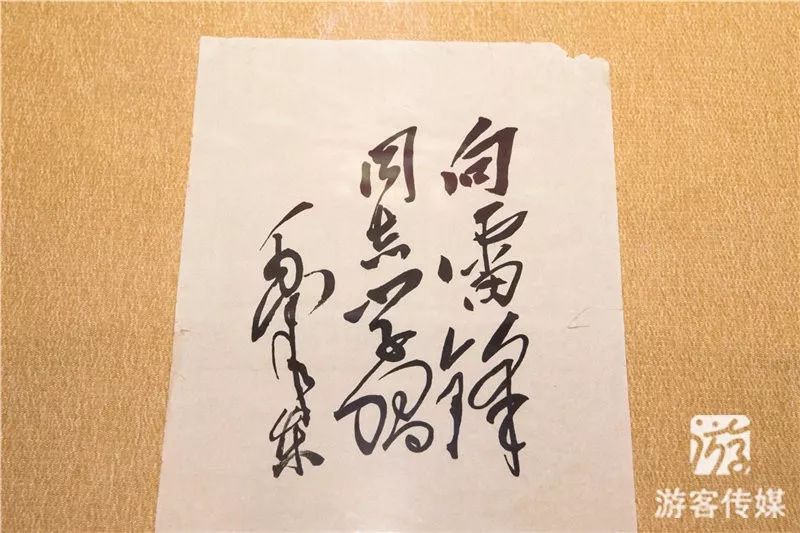 向雷锋
同志学习
毛泽东
游
游客传媒